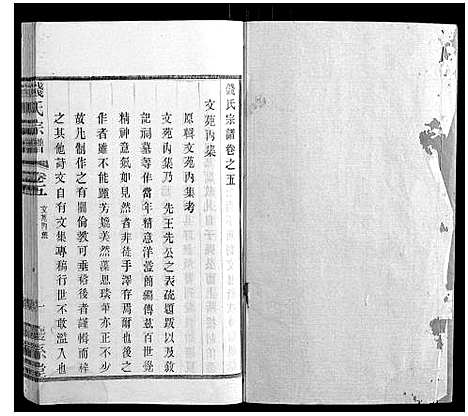 錢氏宗譜卷之五
文苑丙集
原輯文苑丙集考
文苑丙集乃 先王先公之表疏題跋以及敘
記祠墓等作當年精意洋溢簡編傳茲百世覺
精神意氣如見然者非徒手澤存焉爾也後之
作者雖不能踵芳嬀美然藻思瑛華亦正不少
故凡制作之有關倫教可垂裕後者謹輯而梓
之其他詩文自有文集專稿行世不敢濫入也
錢氏宗譜
卷五
文苑丙集
一